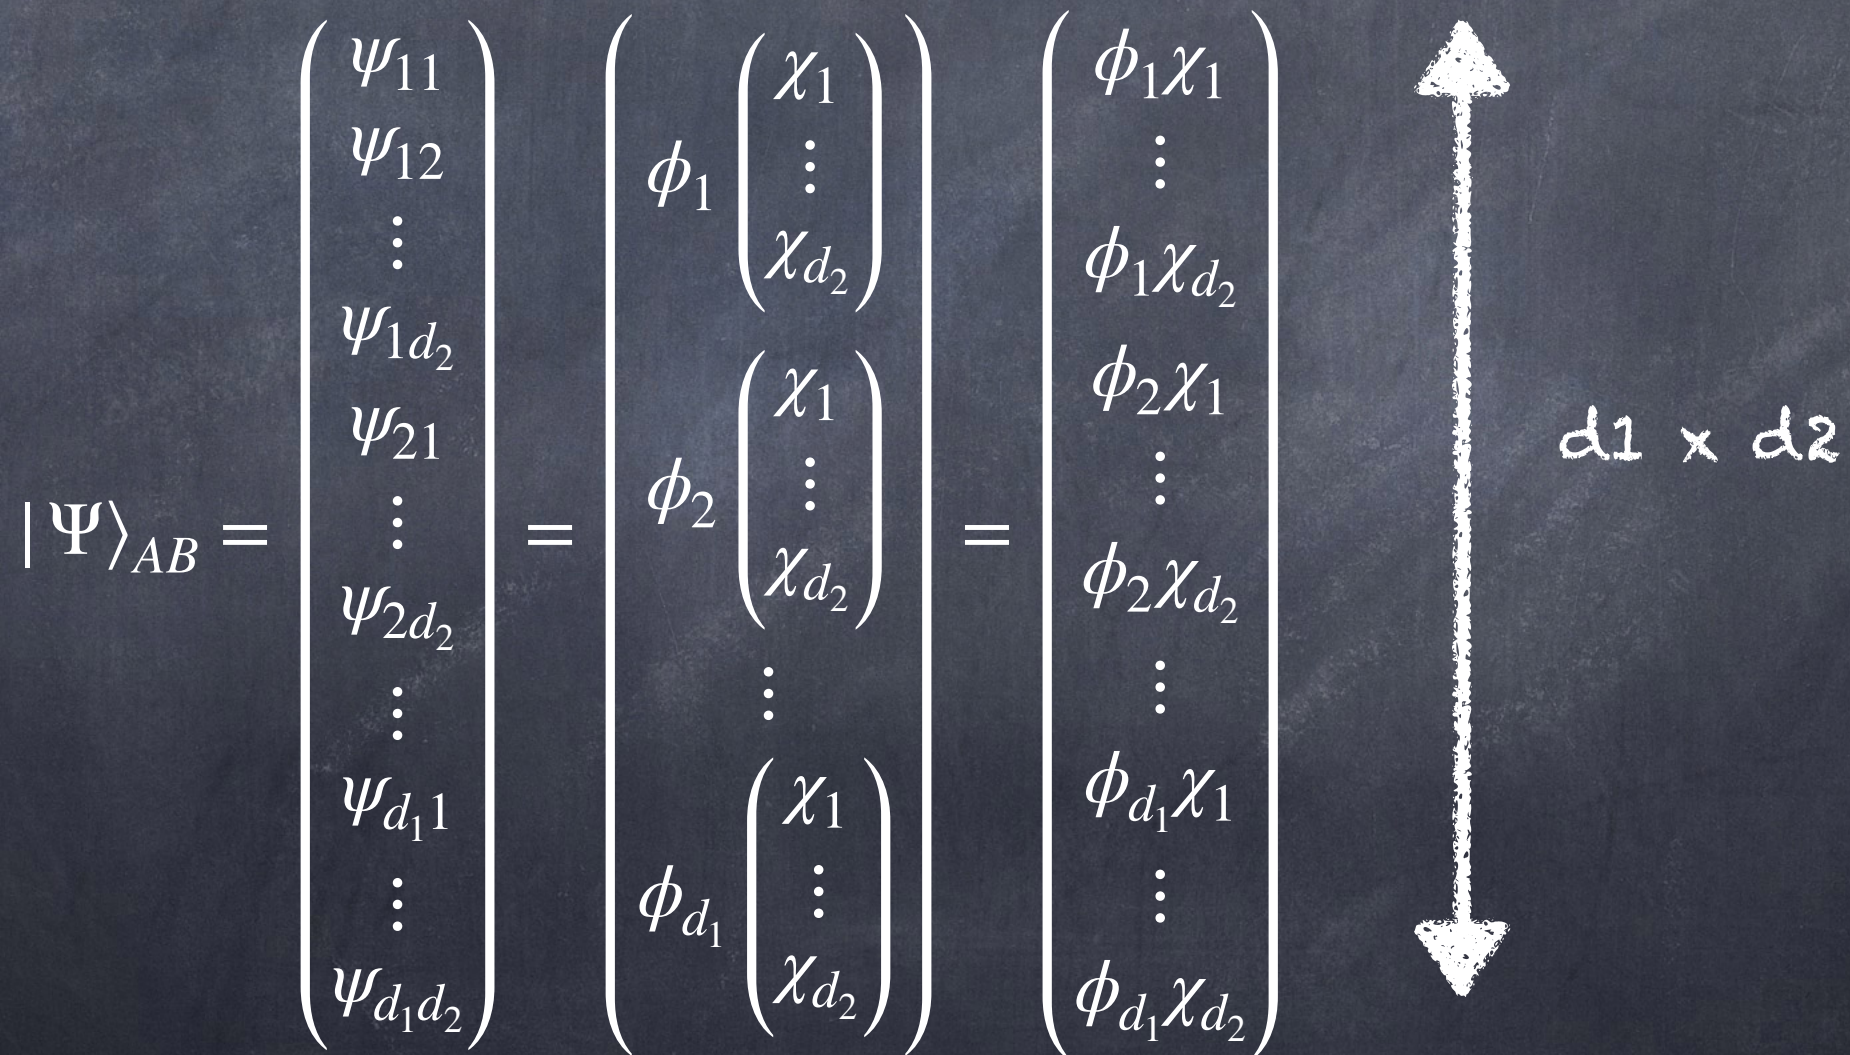 |Ψ⟩_{AB} = \begin{pmatrix} ψ_{11} \\ ψ_{12} \\ ⋮ \\ ψ_{1d_2} \\ ψ_{21} \\ ⋮ \\ ψ_{2d_2} \\ ⋮ \\ ψ_{d_11} \\ ⋮ \\ ψ_{d_1d_2} \end{pmatrix} = \begin{pmatrix} ϕ_1 \begin{pmatrix} χ_1 \\ ⋮ \\ χ_{d_2} \end{pmatrix} \\ ϕ_2 \begin{pmatrix} χ_1 \\ ⋮ \\ χ_{d_2} \end{pmatrix} \\ ⋮ \\ ϕ_{d_1} \begin{pmatrix} χ_1 \\ ⋮ \\ χ_{d_2} \end{pmatrix} \end{pmatrix} = \begin{pmatrix} ϕ_1χ_1 \\ ⋮ \\ ϕ_1χ_{d_2} \\ ϕ_2χ_1 \\ ⋮ \\ ϕ_2χ_{d_2} \\ ⋮ \\ ϕ_{d_1}χ_1 \\ ⋮ \\ ϕ_{d_1}χ_{d_2} \end{pmatrix}
d1 x d2